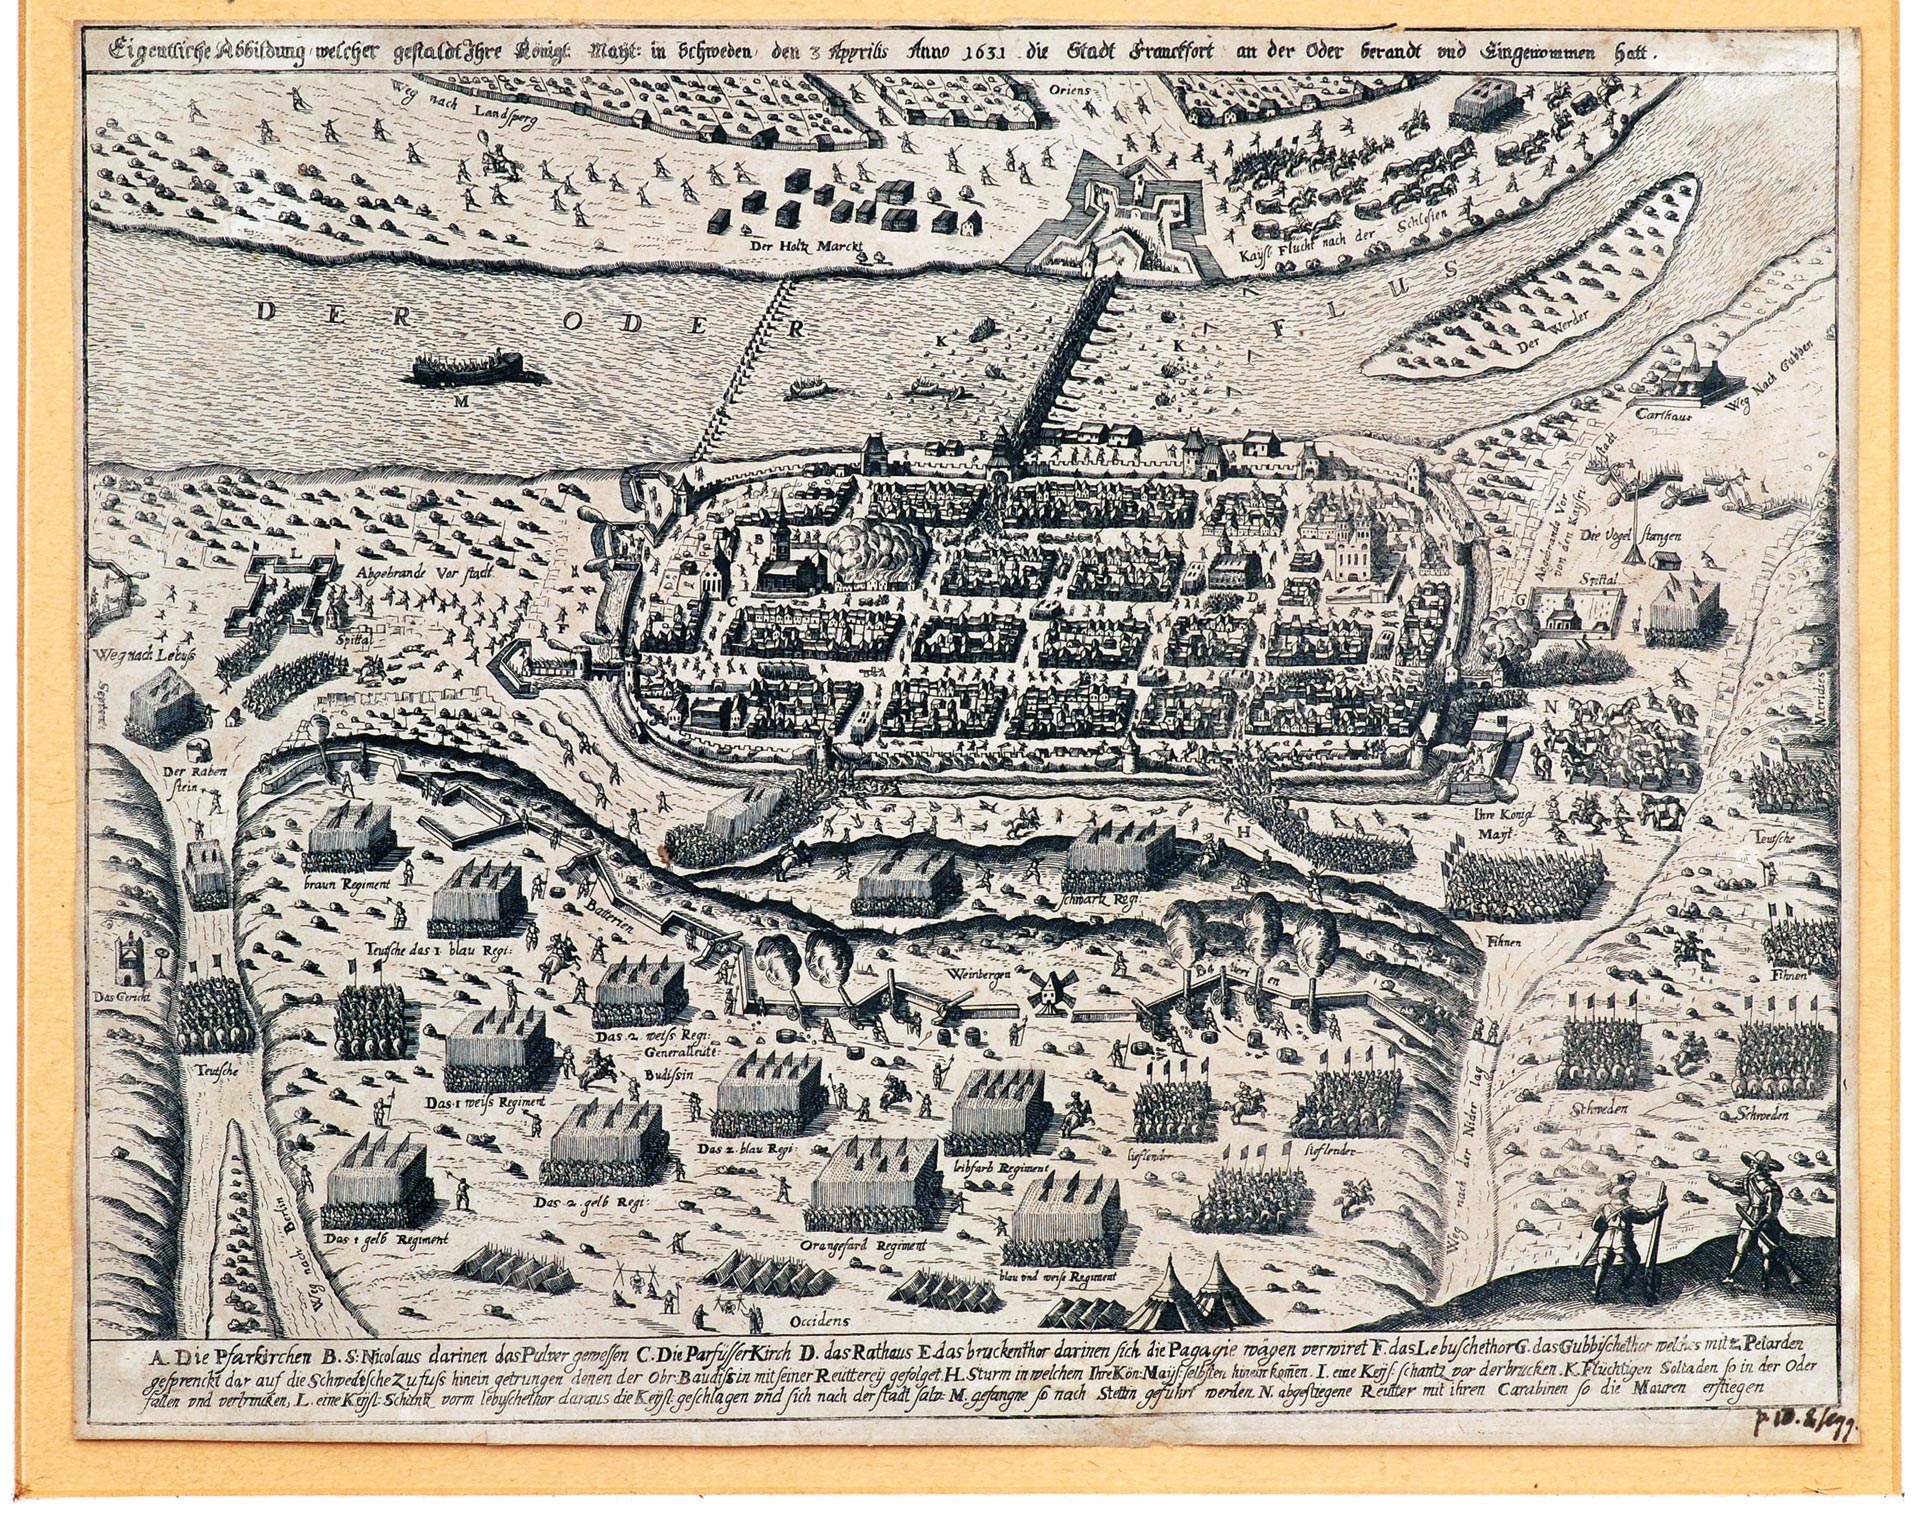 Eigentliche Abbildung welcher gestaldt Ihre Königl: Mayt: in Schweden den 3 Apprilis Anno 1631 die Stadt Franckfort an der Oder berandt vnd Eingenommen hatt.
Weg nach Landsperg
Oriens
I
Der Holtz Marckt
Kaysl Flücht nach der Schlesien
DER ODER FLUS
Der Werder
K
K
M
Carthaus
Weg Nach Gubben
E
Abgebrande Vor stadt von den Kaysri
Die Vogel stangen
Spittal
L
Abgebrande Vor stadt
Spittal
B
A
C
D
F
G
Weg nach Lebuss
Septen:
Meridies
N
Der Raben stein
Ihre Königl Mayt:
H
Teutsche
braun Regiment
Batterien
schwartz Regi:
Fihnen
Teutsche das 1 blau Regi:
Fihnen
Das Gericht
Weinbergen
Batterien
Das 2 weiss Regi:
Generalleutt:
Budissin
Teutsche
Das 1 weiss Regiment
Schweden
Schweden
Das 2 blau Regi
lieflender
lieflender
leibfarb Regiment
Das 2 gelb Regi:
Das 1 gelb Regiment
Orangefard Regiment
Weg nach Berlin
Weg nach der Nider lag
blau vnd weise Regiment
Occidens
A. Die Pfarkirchen B. S: Nicolaus darinen das Pulver gewessen C. Die Parfüsser Kirch D. das Rathaus E. das bruckenthor darinen sich die Pagagie wägen verwiret F. das Lebuschethor G. das Gubbischethor welches mit 2 Petarden
gesprenckt dar auf die Schwedische Zu fuss hinein getrungen denen der Obr: Baudissin mit seiner Reutterey gefolget. H. Sturm in welchem Ihre Kön: Mayt: selbsten hinein komen. I. eine Keys: schantz vor der brucken. K. Flüchtigen Soltaden so in der Oder
fallen vnd vertrincken, L. eine Keyst: Schantz vorm lebuschethor daraus die Keyst: geschlagen vnd sich nach der stadt salv: M. gefangne so nach Stettin geführt werden. N. abgestiegene Reutter mit ihren Carabinen so die Mauren erstiegen
p. 10. & seqq.